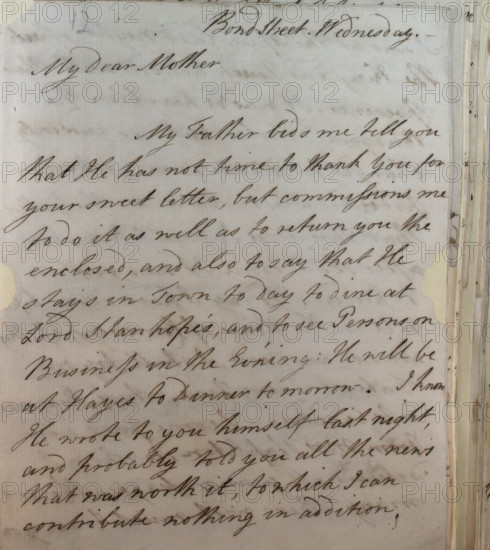 12
Bond Street. Wednesday.
My dear Mother.
My Father bids me tell you
that He has not time to thank you for
your sweet letter, but commissions me
to do it as well as to return you the
enclosed, and also to say that He
stays in Town to day to dine at
Lord Stanhope's, and to see Persons on
Business in the Evening: He will be
at Hayes to Dinner to morrow. I know
He wrote to you himself last night,
and probably told you all the news
that was worth it, to which I can
contribute nothing in addition,
PHOTO 12